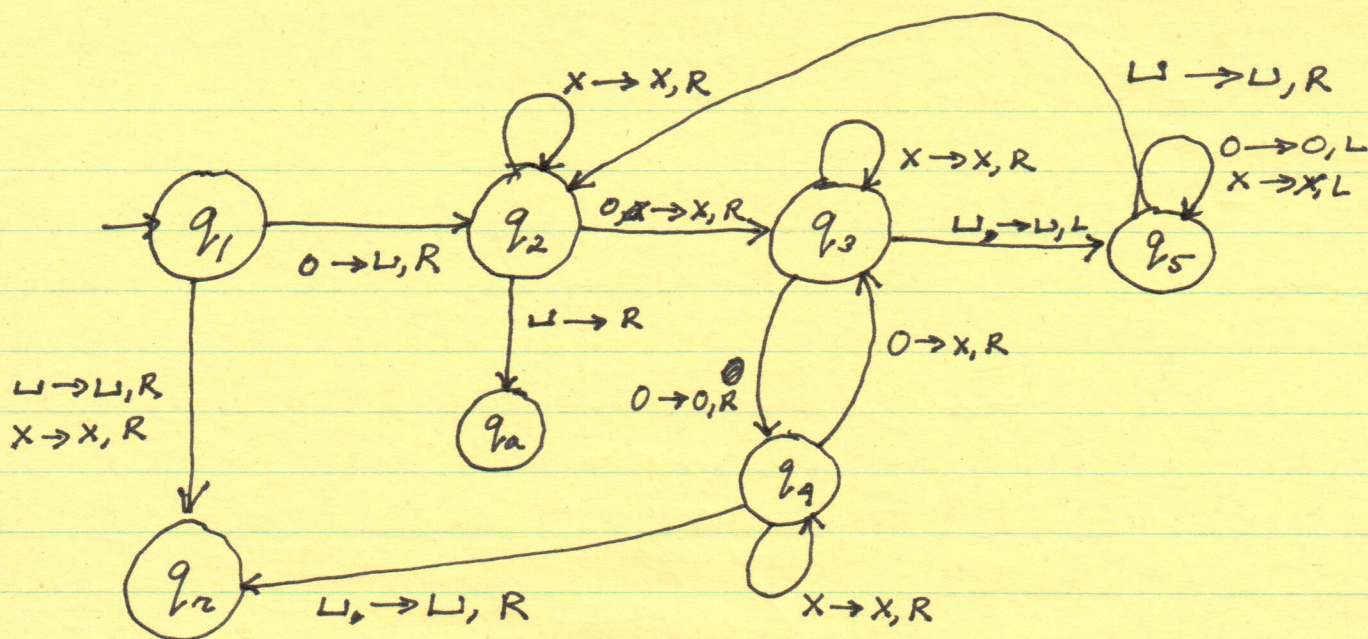 x → x, R
⊔ → ⊔, R
x → x, R
0 → 0, L
x → x, L
q1
0 → ⊔, R
q2
0, → x, R
q3
⊔, → ⊔, L
q5
⊔ → R
0 → x, R
⊔ → ⊔, R
x → x, R
0 → 0, R
qa
q4
qr
⊔, → ⊔, R
x → x, R